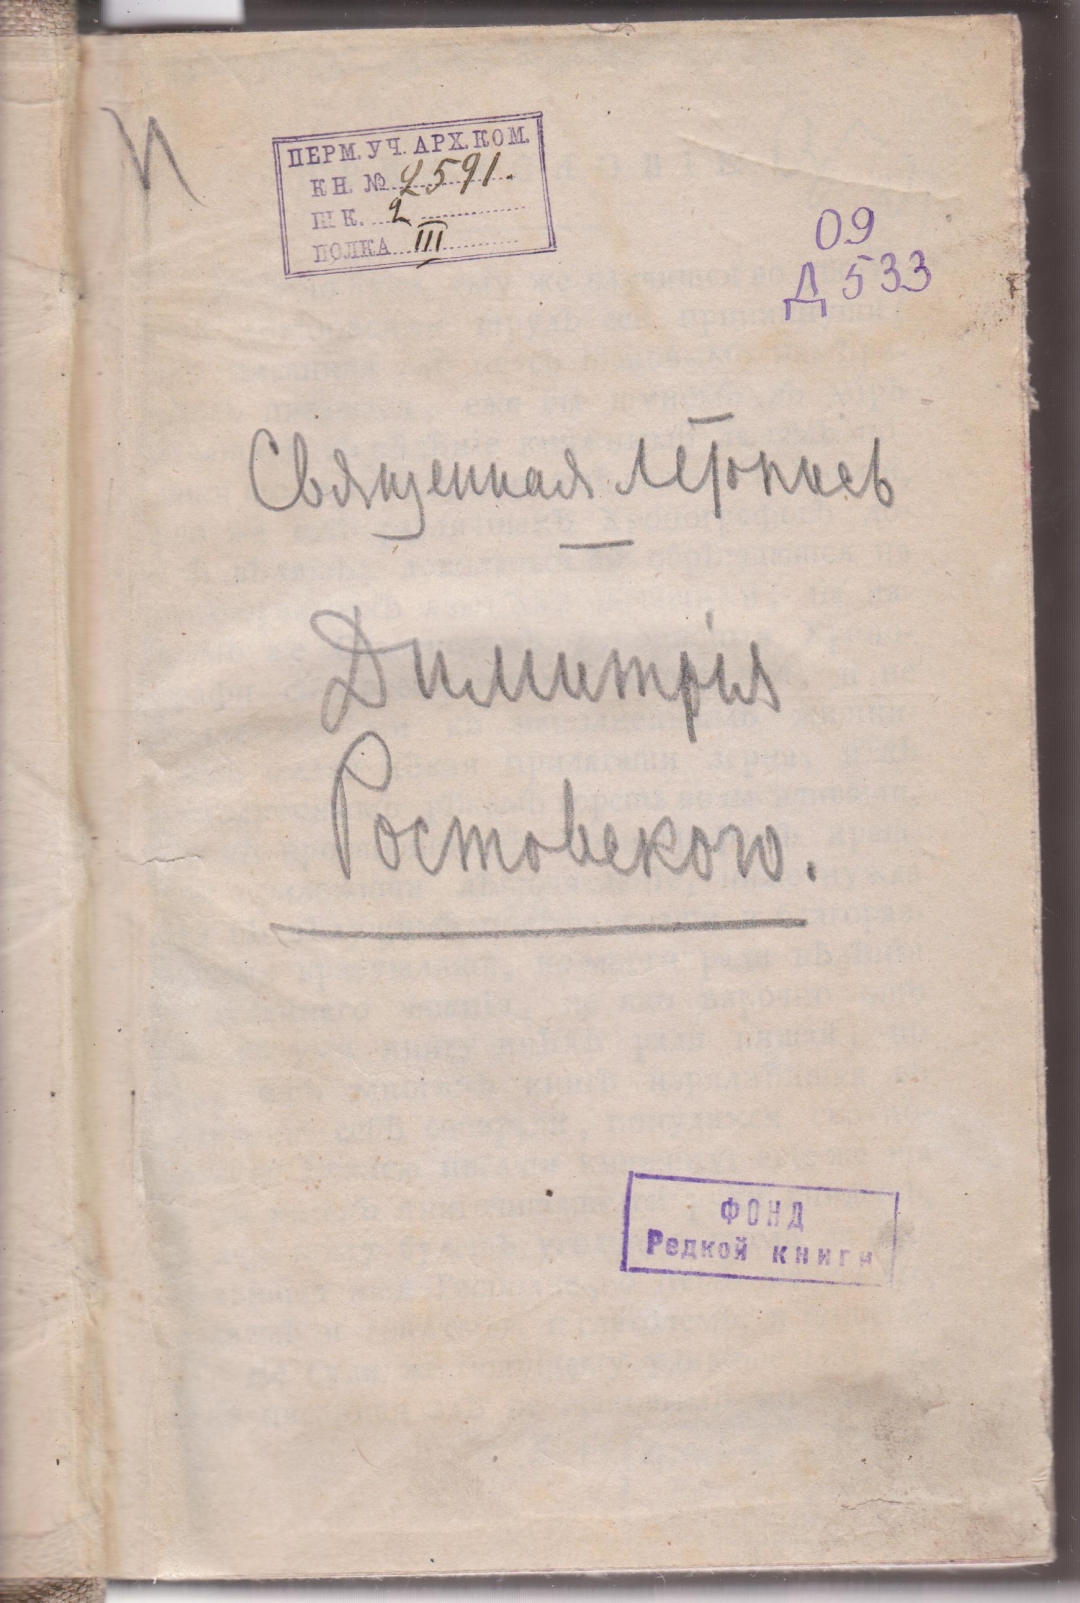 И
ПЕРМ. УЧ. АРХ. КОМ.
КН. № 2591.
ШК. 2
ПОЛКА III
09
Д 533
Священная летопись
Димитрія
Ростовского.
ФОНД
Редкой книги